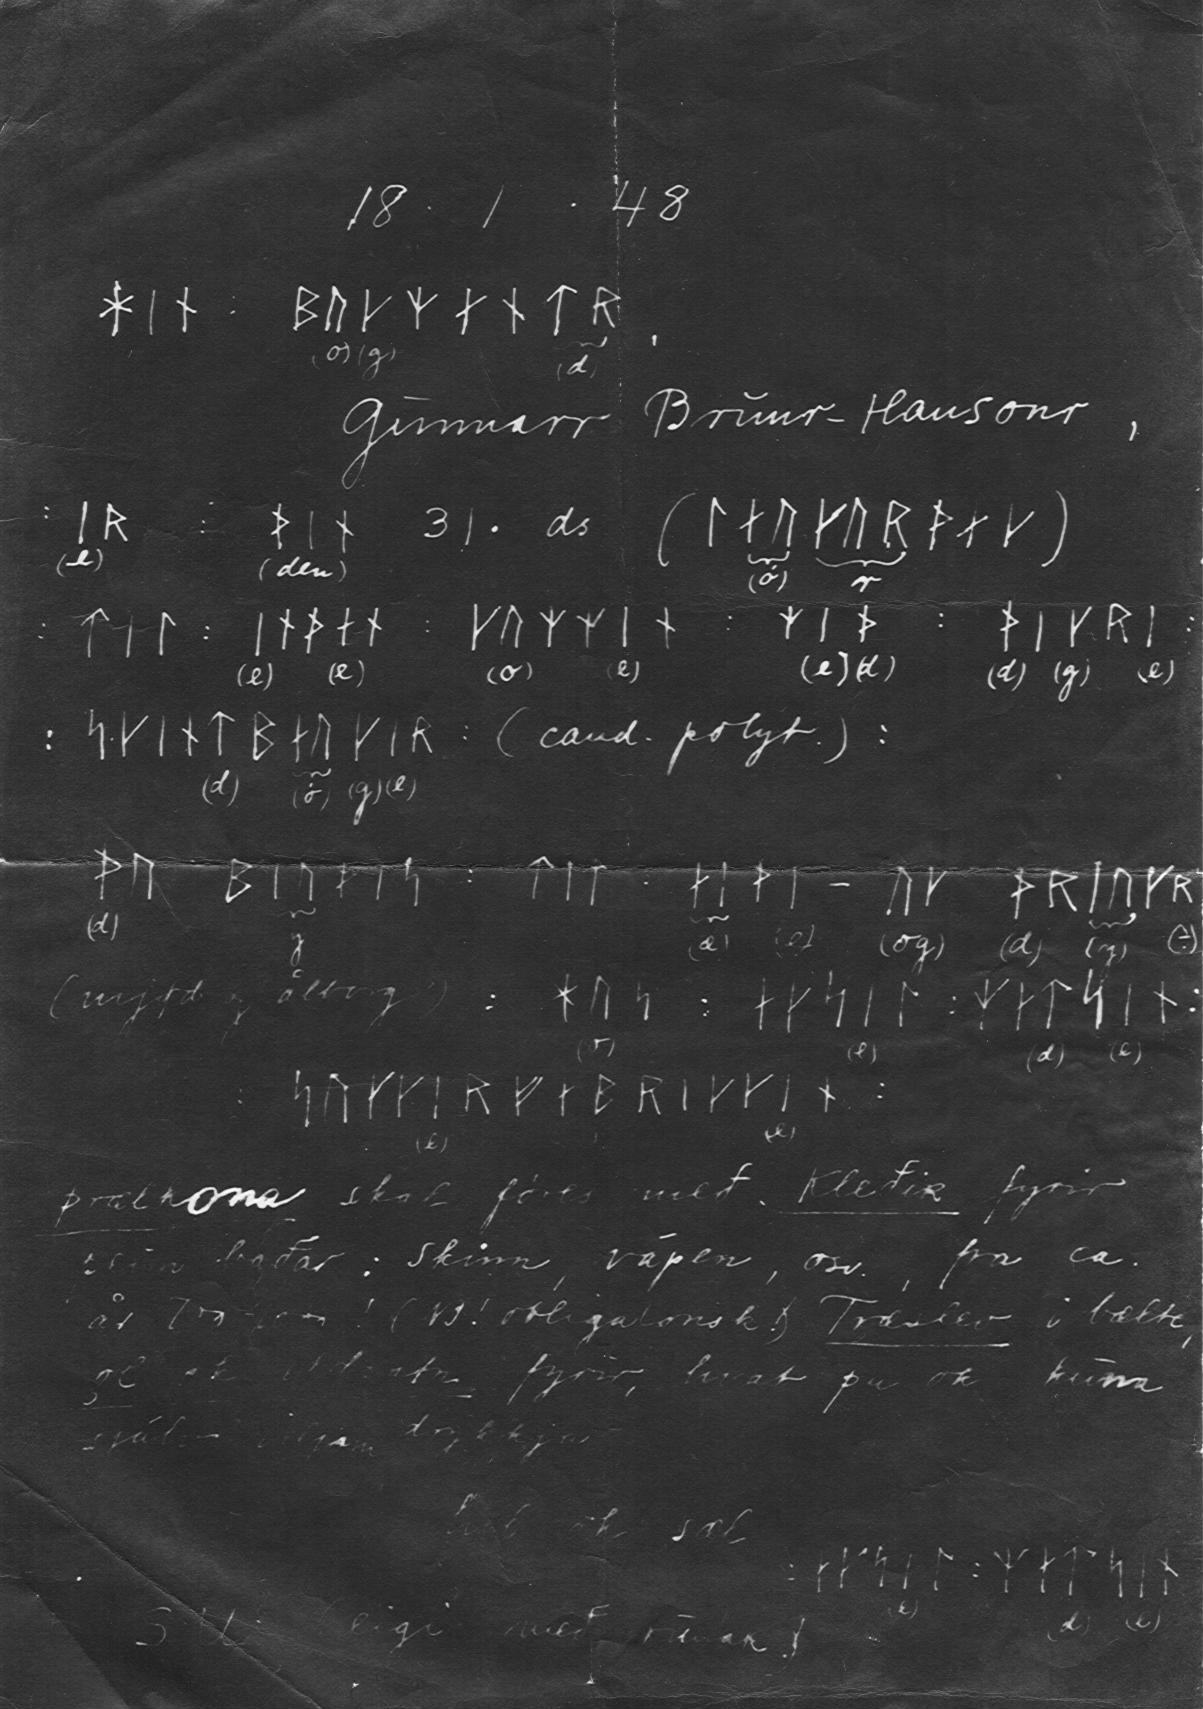 18 · 1 · 48
ᚼᛁᚾ : ᛒᚢᚴᛘᛅᚾᛏᚱ ,
(o) (g) (d)
Gunnarr Brúnr-Hansonr ,
: ᛁᚱ : ᚦᛁᚾ 31. ds (ᛚᛅᚢᚴᚢᚱᚦᛅᚴ)
(e) (den) (ö) r
: ᛏᛁᛚ : ᛁᚾᚦᛅᚾ : ᚴᚢᛘᛘᛁᚾ : ᛘᛁᚦ : ᚦᛁᚴᚱᛁ :
(e) (e) (o) (e) (e) (d) (d) (g) (e)
: ᛋᚴᛁᚾᛏᛒᛅᚢᚴᛁᚱ : (cand. polyt.) :
(d) (ö) (g) (e)
ᚦᚢ ᛒᛁᚢᚦᛁᛋ : ᛏᛁᛚ · ᛅᛁᚦᛁ - ᚢᚴ ᚦᚱᛁᚢᚴᚱ
(d) y (æ) (e) (og) (d) (y)
(mjød og ålborg) : ᚼᚢᛋ : ᛅᚴᛋᛁᛚ : ᛘᛅᛏᛋᛁᚾ :
(e) (d) (e)
: ᛋᚢᚴᚴᛁᚱᚠᛅᛒᚱᛁᚴᚴᛁᚾ :
(e) (e)
þrælkona skal føres með. Kleðir fyrir
: skinn, vápen, osv., fra ca.
år ! (NB! obligatorisk!) Træslev i bælte,
øl ok fyrir, hvat þu ok kúna
drykkja
heil ok sæl
: ᛅᚴᛋᛁᛚ : ᛘᛅᛏᛋᛁᚾ
(e) (d) (e)
S.U. eigi með rúnar !